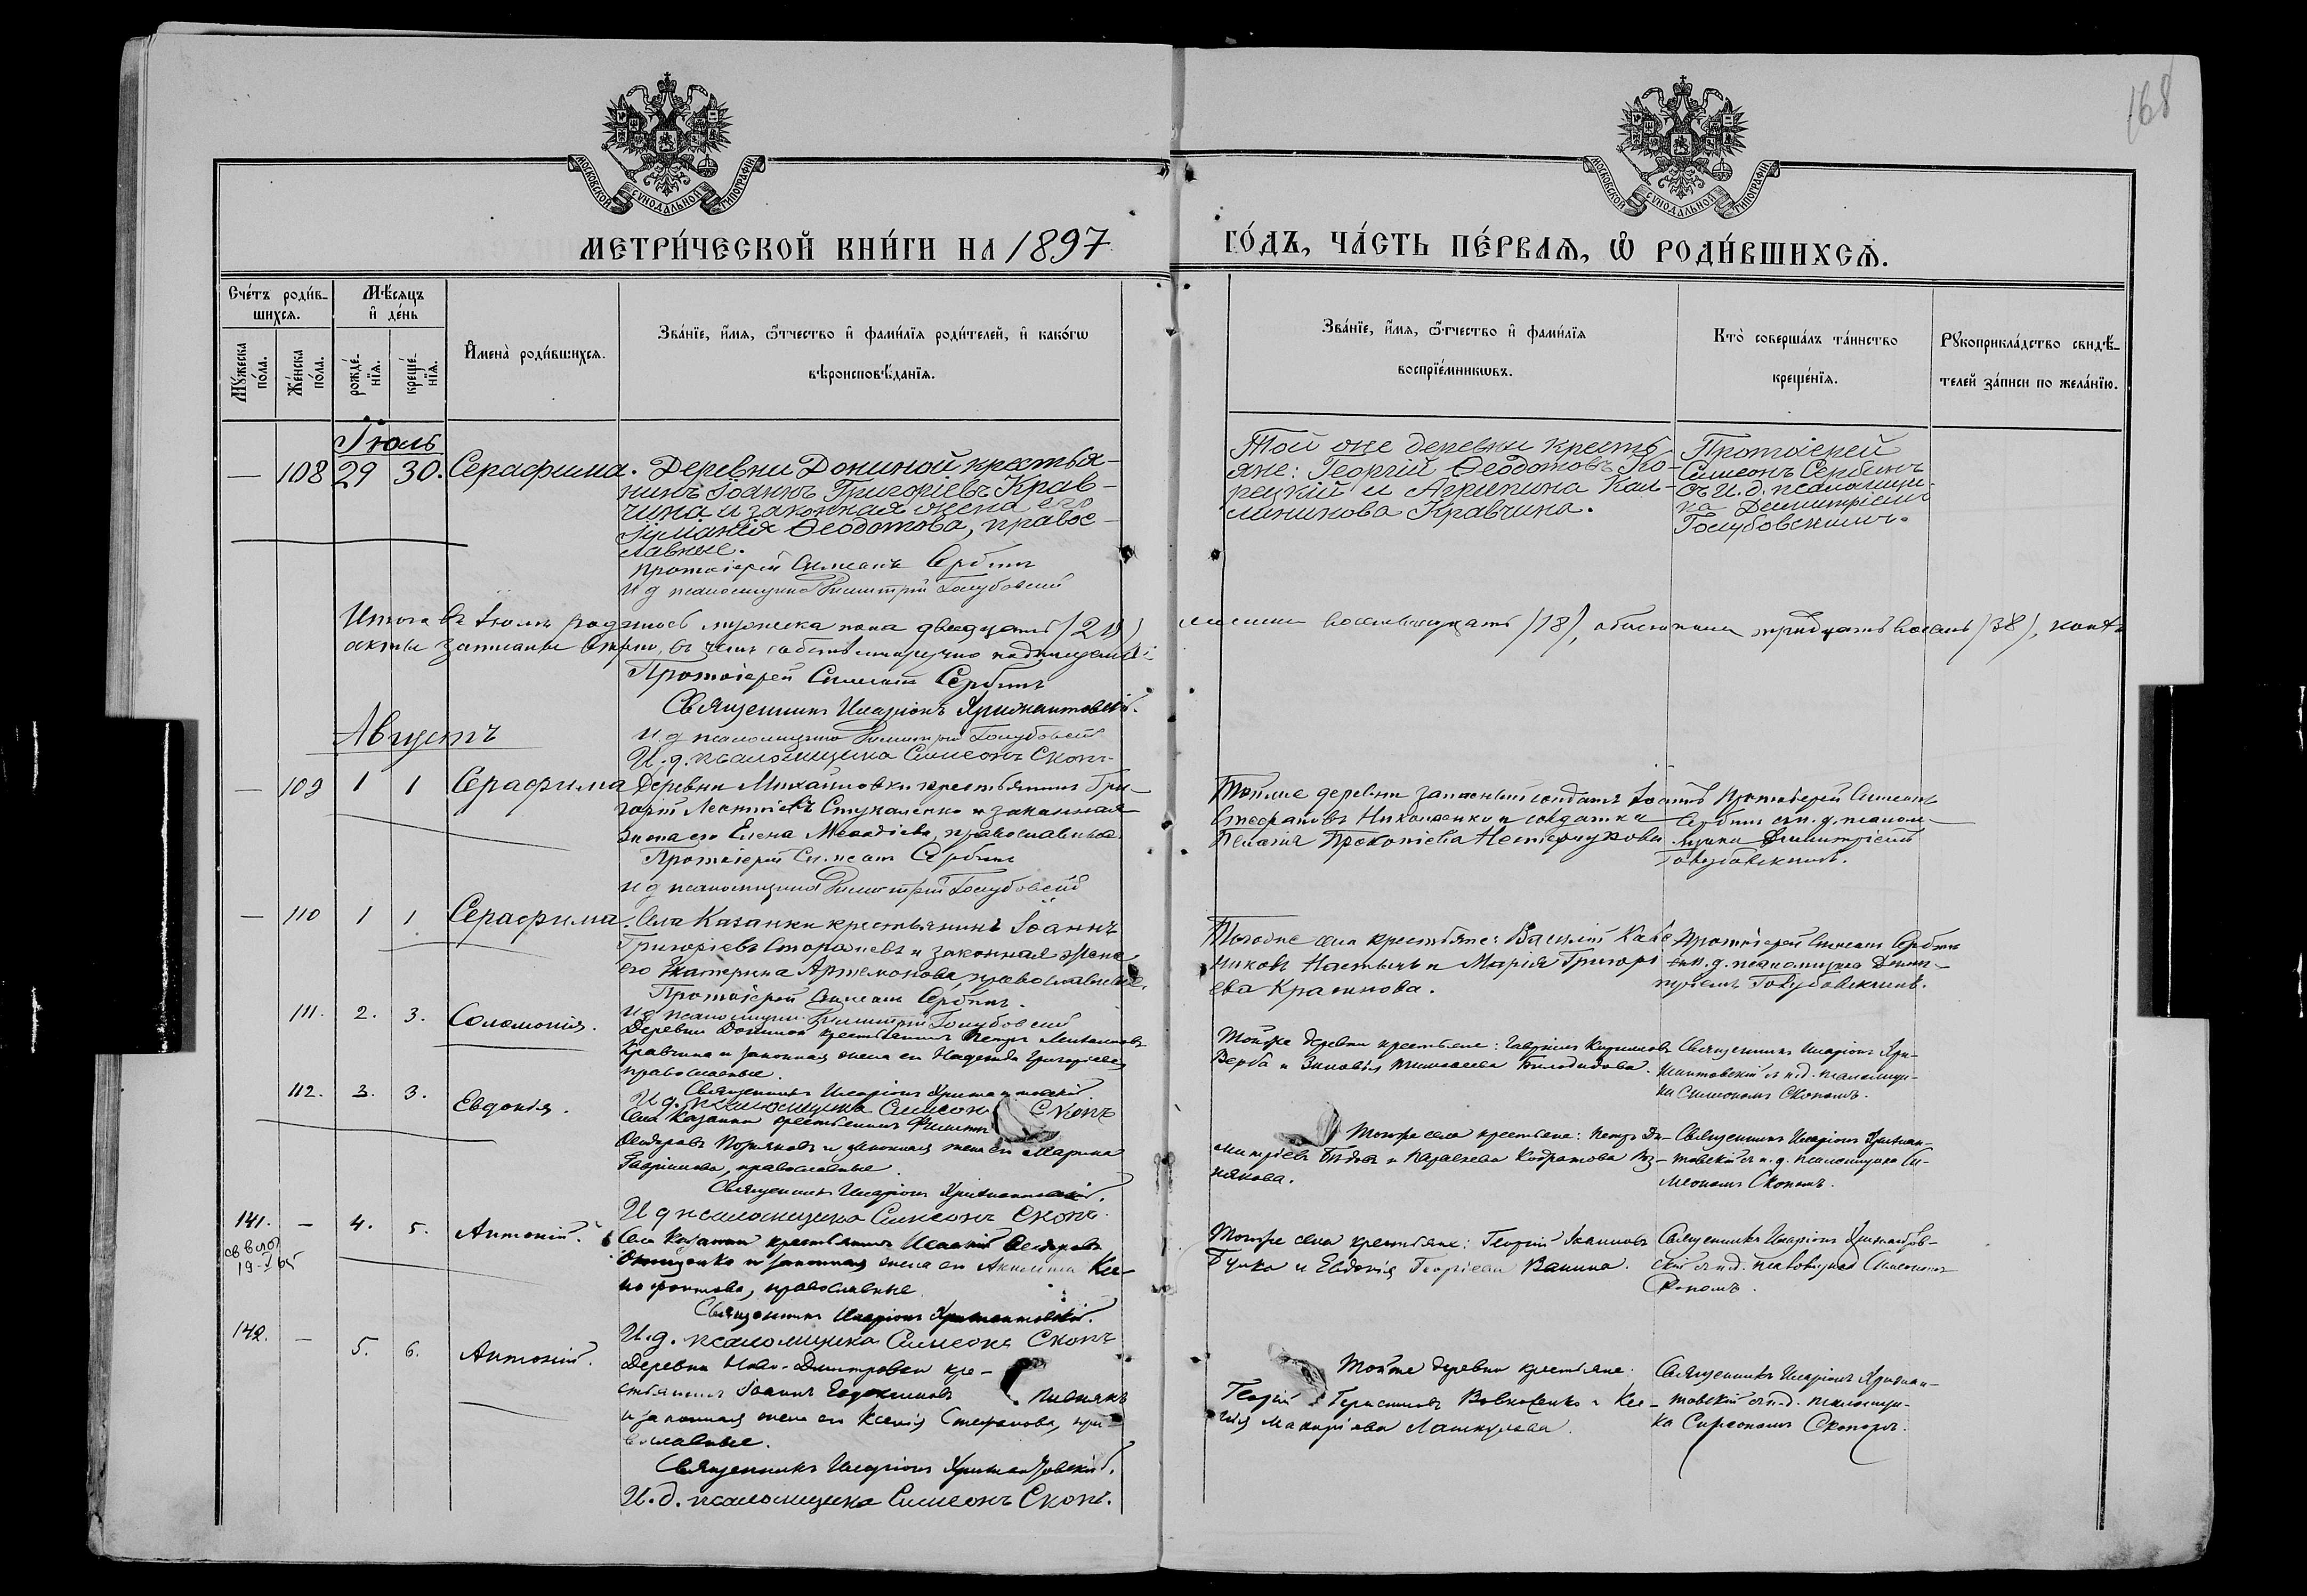 168
МОСКОВСКОЙ СѴНОДАЛЬНОЙ ТИПОГРАФІИ
МОСКОВСКОЙ СѴНОДАЛЬНОЙ ТИПОГРАФІИ
МЕТРИ́ЧЕСКОЙ КНИ́ГИ НА 1897
ГО́ДЪ, ЧА́СТЬ ПЕ́РВАЯ, Ѿ РОДИ́ВШИХСѦ.
Сче́тъ роди́в-
шихсѧ.
Мѣ́сѧцъ
и҆ де́нь
Мꙋ́жеска
по́ла.
Же́нска
по́ла.
рожде́-
нїѧ.
креще́-
нїѧ.
И҆мена̀ роди́вшихсѧ.
Зва́нїе, и҆́мѧ, ѻ҆́тчество и҆ фами́лїѧ роди́телей, и҆ како́гѡ
вѣроисповѣ́данїѧ.
Зва́нїе, и҆́мѧ, ѻ҆́тчество и҆ фами́лїѧ
воспрїе́мникѡвъ.
Кто̀ соверша́лъ та́инство
креще́нїѧ.
Рꙋкоприкла́дство свидѣ́-
телей за́писи по жела́нїю.
Іюль
— 108 29 30. Серафима. Деревни Дониной крестья-
нинъ Іоаннъ Григоріевъ Крав-
чина и законная жена его
Ѳеодотова, правос-
лавные.
Протоіерей Симеонъ Сербинъ
И д псаломщика Димитрій Голубовскій
Той же деревни кресть-
яне: Георгій Ѳеодотовъ Ко-
рецкій и Агрипина Кал-
линикова Кравчина.
Протоіерей
Симеонъ Сербинъ
съ И. д. псаломщи-
ка Димитріемъ
Голубовскимъ.
Итого въ Іюлѣ родилось мужеска пола двадцать (20)
женска восемнадцать (18), обоего пола тридцать восемь (38),
акты записаны вѣрно, въ чемъ собственноручно подписуемся:
Протоіерей Симеонъ Сербинъ
Священникъ Иларіонъ Хрижантовскій.
И д псаломщика Димитрій Голубовскій
И. д. псаломщика Симеонъ Скопъ
Августъ
— 109 1 1 Серафима Деревни Михайловки крестьянинъ Гри-
горій Леонтіевъ Стукаленко и законная
жена его Елена Меѳодіева, православные.
Протоіерей Симеонъ Сербинъ
И д псаломщика Димитрій Голубовскій
Той же деревни запасный солдатъ
Стефановъ Николаенко и солдатка
Пелагія Прокопіева
Протоіерей Симеонъ
Сербинъ съ и. д. псалом-
щика Димитріемъ
Голубовскимъ.
— 110 1 1 Серафима. Села Казанки крестьянинъ Іоаннъ
Григоріевъ Сторожевъ и законная жена
его Екатерина Артемонова, православные.
Протоіерей Симеонъ Сербинъ.
И д псаломщика Димитрій Голубовскій
Того же села крестьяне: Василій
Настычъ и Марія Григорі-
ева Красикова.
Протоіерей Симеонъ Сербинъ
съ и. д. псаломщика Дими-
тріемъ Голубовскимъ.
111. 2. 3. Соломонія. Деревни Дониной крестьянинъ Петръ
Кравчина и законная жена его Надежда Григоріева,
православные.
Священникъ Иларіонъ Хрижантовскій.
И д. псаломщика Симеонъ Скопъ
Той же деревни крестьяне: Гавріилъ
Верба и Зиновія Билодидова.
Священникъ Иларіонъ Хри-
жантовскій съ и.д. псаломщи-
ка Симеономъ Скопомъ.
112. 3. 3. Евдокія. Села Казанки крестьянинъ Филиппъ
Ѳеодоровъ и законная жена его Марина
Гавріилова, православные.
Священникъ Иларіонъ Хрижантовскій.
И д псаломщика Симеонъ Скопъ.
Того же села крестьяне: Петръ Ди-
митріевъ и Параскева Кодратова
някова.
Священникъ Иларіонъ Хрижан-
товскій съ и. д. псаломщика Си-
меономъ Скопомъ.
141. — 4. 5. Антоній. Села Казанки крестьянинъ Ѳеодоровъ
Онищенко и законная жена его Акилина
православные.
Священникъ Иларіонъ Хрижантовскій.
И.д. псаломщика Симеонъ Скопъ
Того же села крестьяне: Георгій Іоанновъ
и Евдокія Георгіева Ванина.
Священникъ Иларіонъ Хрижантов-
скій съ и.д. псаломщика Симеономъ
Скопомъ.
142. — 5. 6. Антоній. Деревни Ново-Димитровки кре-
стьянинъ Іоаннъ Евдокимовъ Пивнякъ
и законная жена его Ксенія Стефанова, пра-
вославные.
Священникъ Иларіонъ Хрижантовскій.
И. д. псаломщика Симеонъ Скопъ.
Той же деревни крестьяне:
Георгій Герасимовъ Вовкотенко и Ксе-
нія Макаріева Лашкулова.
Священникъ Иларіонъ Хрижан-
товскій съ и.д. псаломщи-
ка Симеономъ Скопомъ.